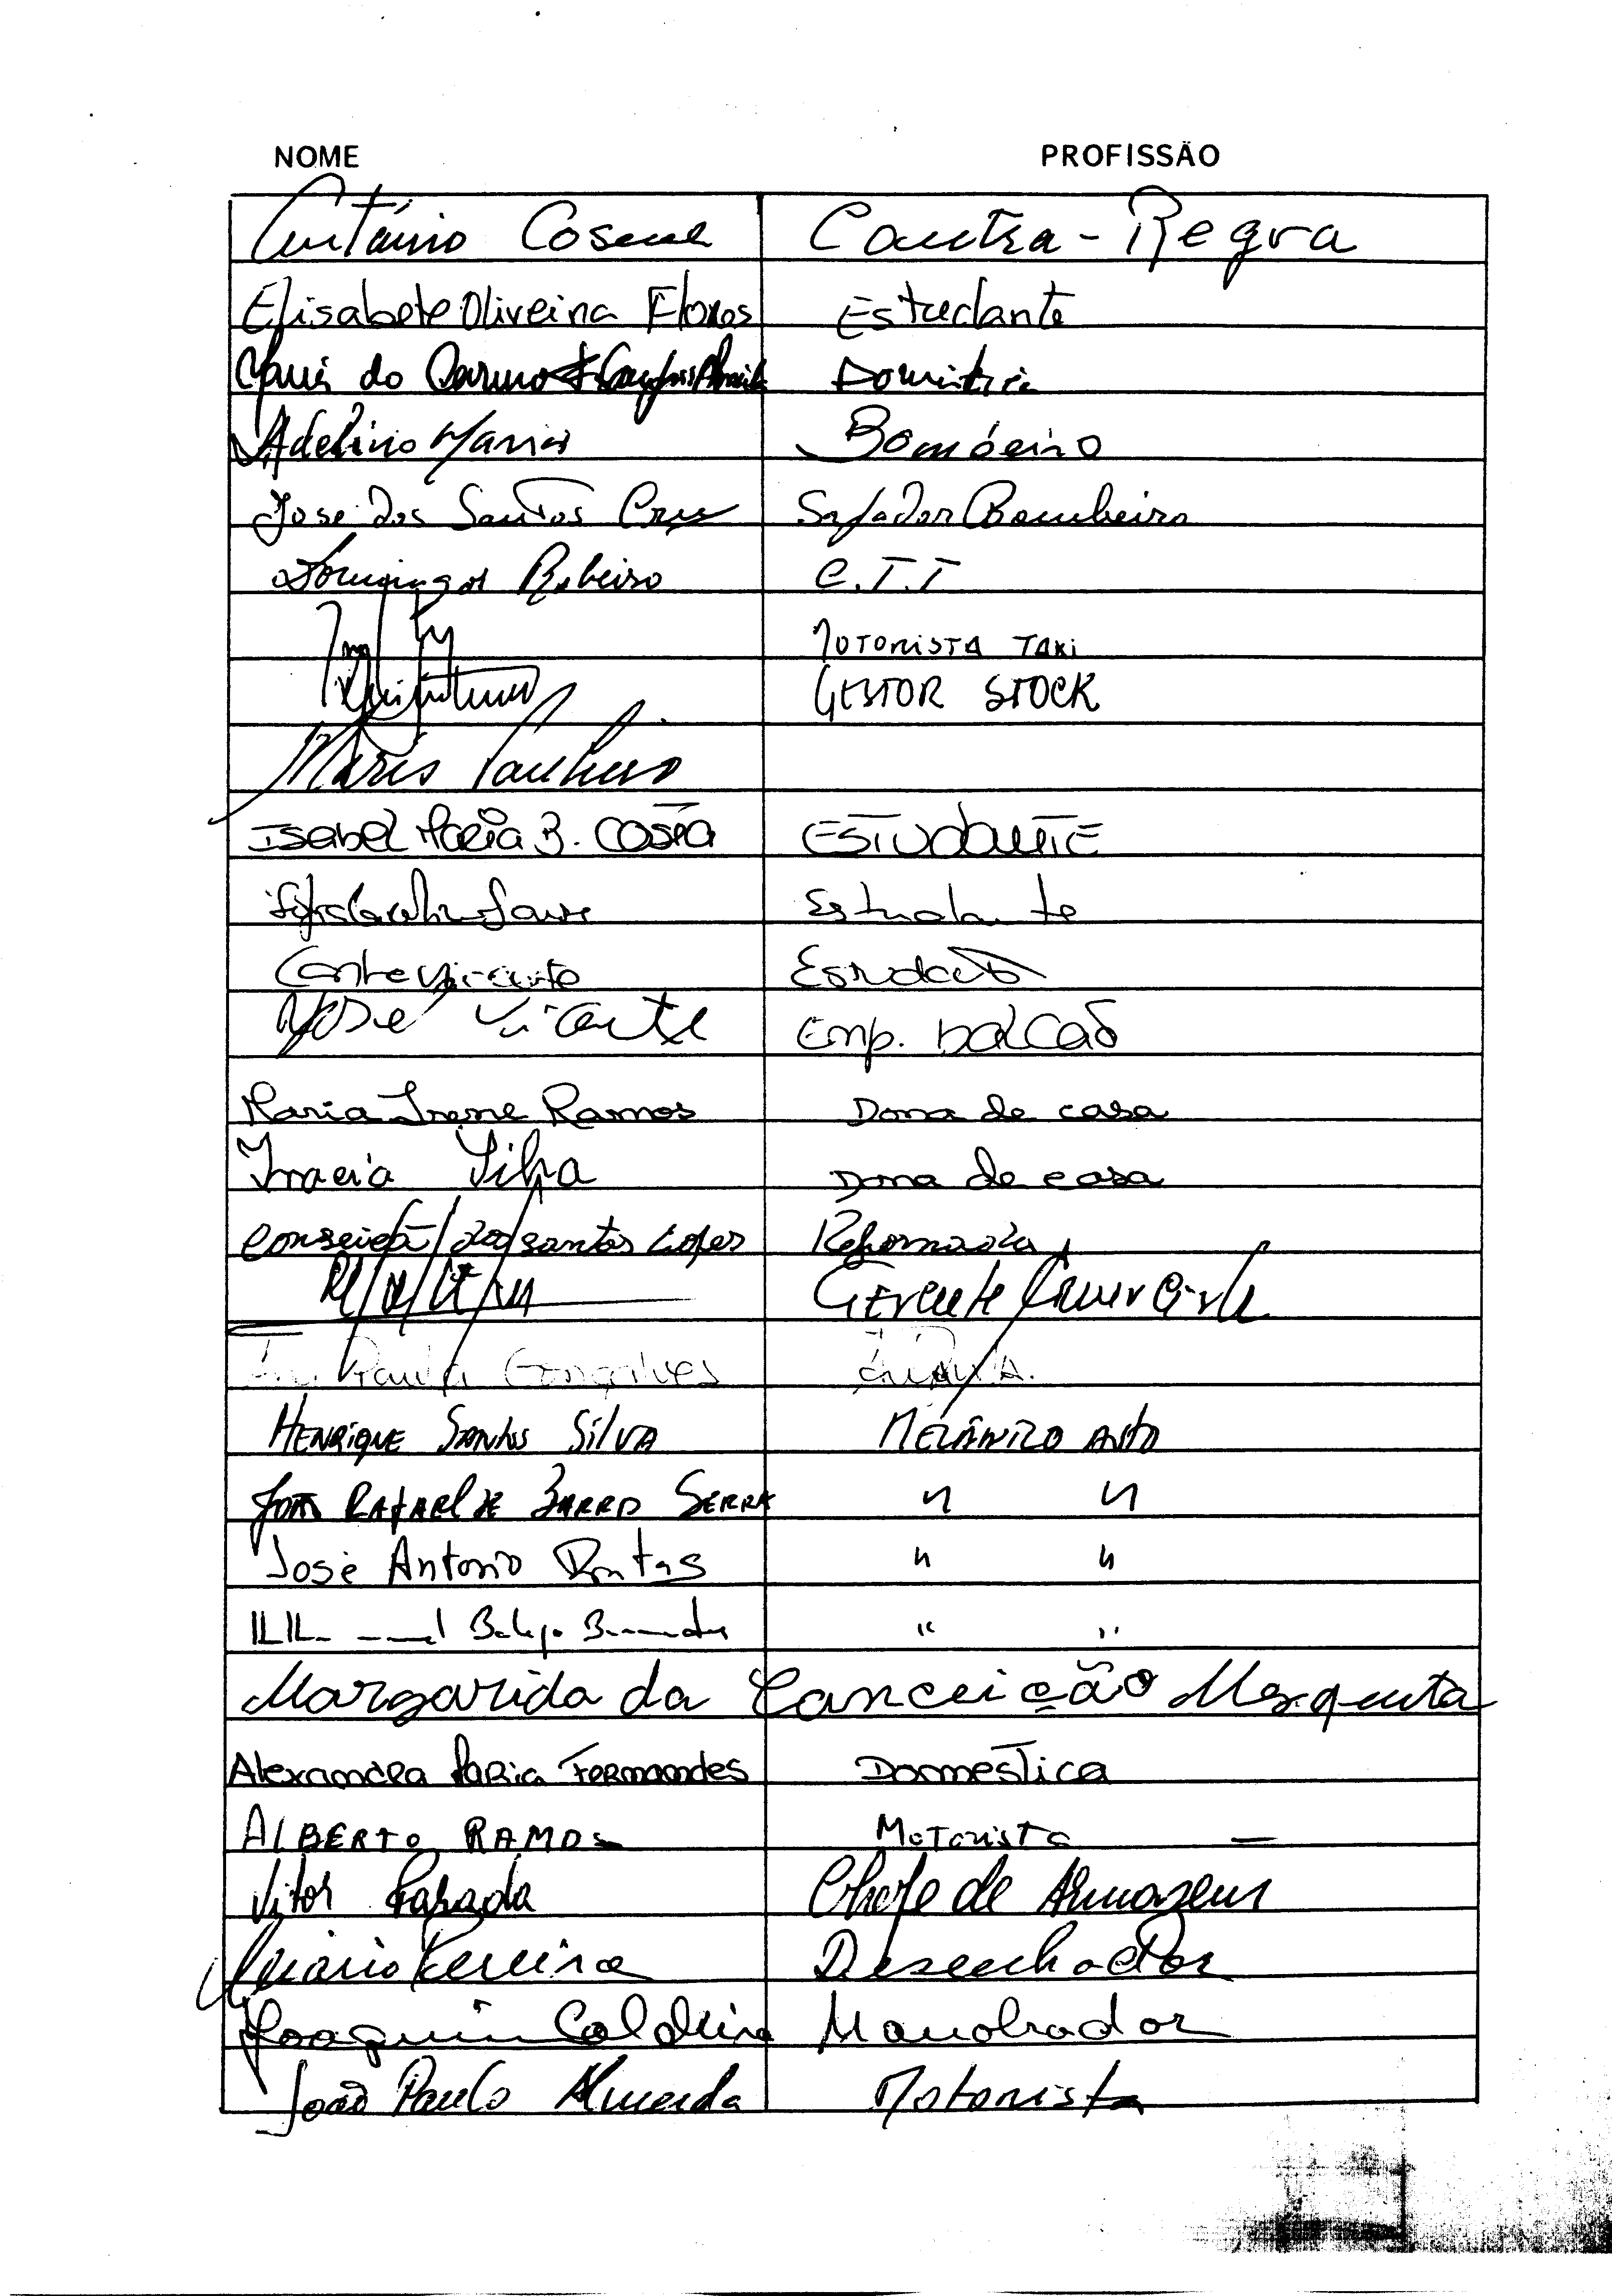 NOME PROFISSÃO
António Cosme Contra-Regra
Elisabete Oliveira Flores Estudante
Maria do Carmo Doméstica
Adelino Maria Bombeiro
Jose dos Santos Cruz Safador Bombeiro
Domingos Ribeiro C.T.T
Motorista Taxi
GESTOR STOCK
Isabel Maria B. Costa ESTUDANTE
Estudante
Estudante
José Vicente Emp. balcão
Maria Irene Ramos Dona de casa
Inacia Silva Dona de casa
Conseição dos santos Lopes Reformada
Gerente
Paula Gonçalves
HENRIQUE SANTOS SILVA MECÂNICO AUTO
JOÃO RAFAEL DE BARROS SERRA " "
José Antonio " "
" "
Margarida da Conceição Mesquita
Alexandra Maria Fernandes Domestica
ALBERTO RAMOS Motorista —
Vitor Parada Chefe de Armazem
Mário Pereira Desenhador
Joaquim Caldeira Manobrador
João Paulo Almeida Motorista